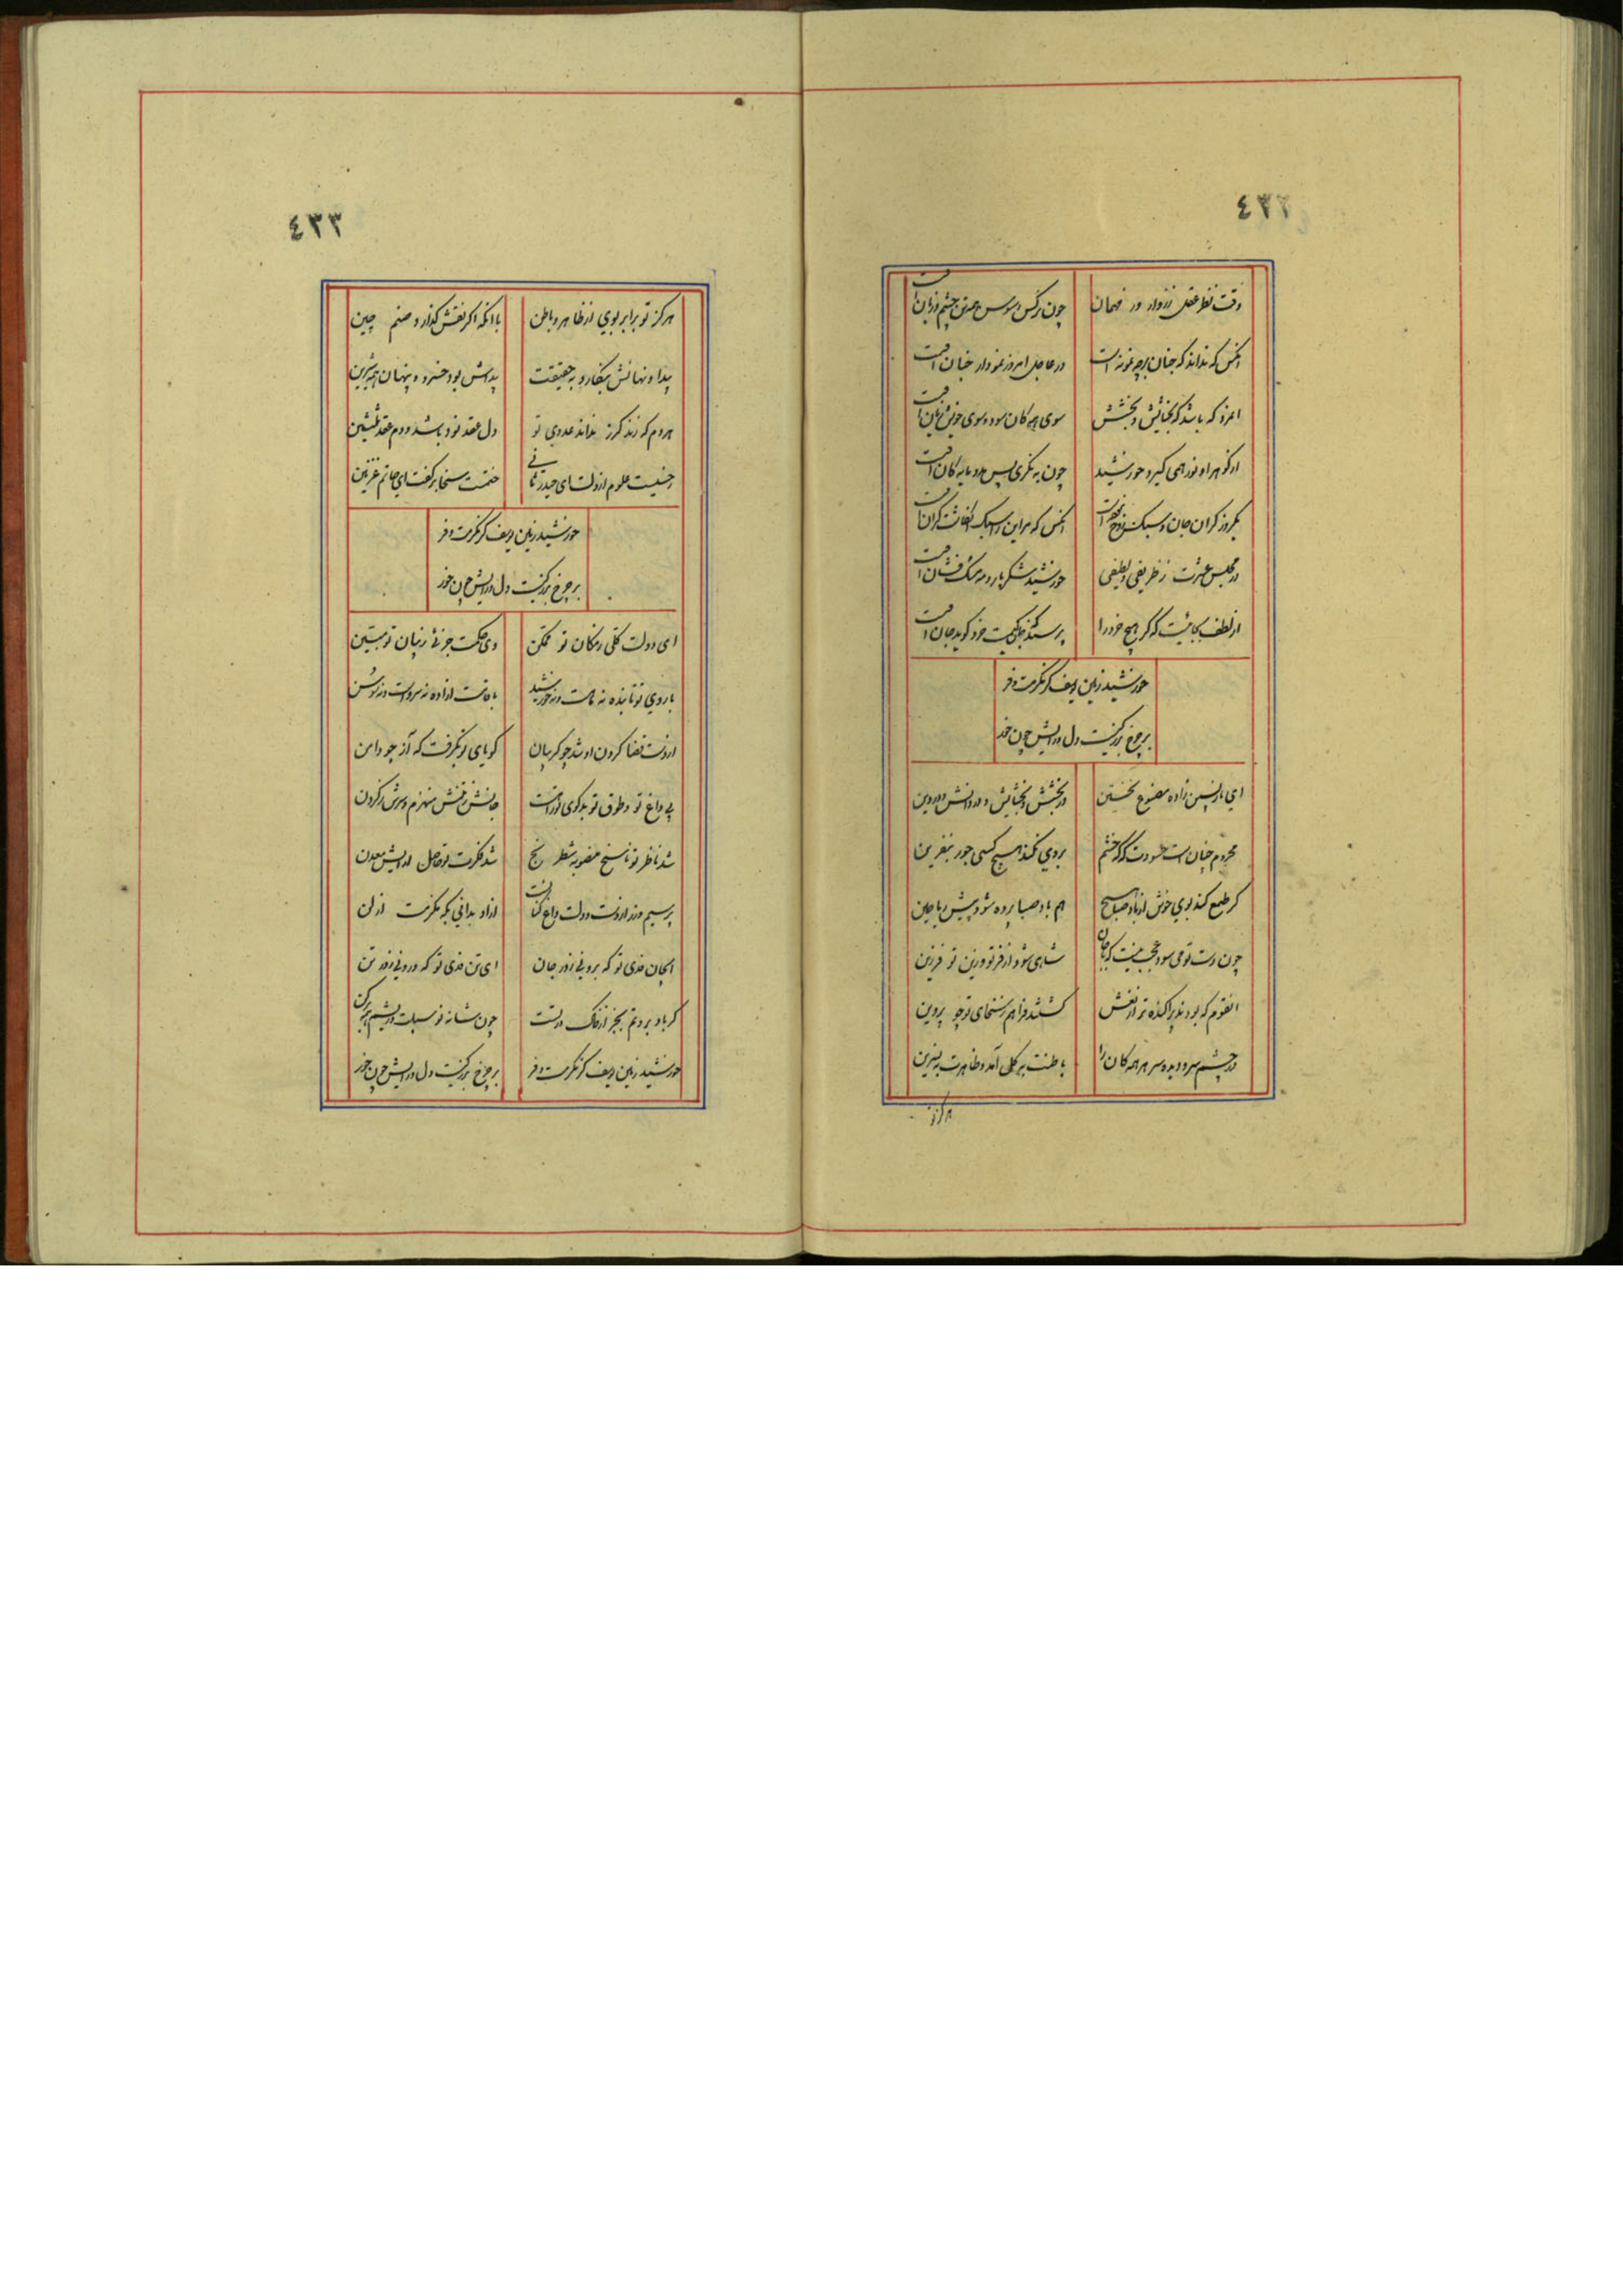 ٤٣٢
وقت نظر عقل ز زوار در فهمان چون نرگس و سوسن همه تن چشم و زبان است
انکس که نداند که جنان بر چه نمونه است در عاجل امروز نمودار جنان است
امرد که باشد که بخشایش و بخشش سوی همه کان سود و سوی خویش زیان است
از گوهر او نور همی گیرد خورشید چون به نگری پس مایه کان است
یکروز گران جان و سبک روح انکس که سبک گران است
در مجلس عشرت ز ظریفی و لطیفی خورشید شکر بار و مه مشک فشان است
از لطف بجائیست که گر هیچ خرد را پرسند که خواجه کیست خرد گوید جان است
خورشید زمین یوسف کز مکرمت و فر
بر چرخ بزرگیست دل و رایش چون خور
ای بازپسین زاده مصنوع نخستین در بخشش و بخشایش و در دانش و در دین
محروم چنان است حسودت که گر خشم بروی نکند هیچ کسی جور بنفرین
گر طمع کند بوی خوش از باد صبا هیچ هم باد صبا برده شود پیش ریاحین
چون دست تو می سود عجب نیست که شاهی شود از فر تو و زین تو فرزین
انقوم که بودند پراکنده تر از نعش گشتند فراهم ز سخای تو چو پروین
در چشم سر و دیده سر هر همه کان را باطنت به گلی آمد و ظاهرت به نسرین
هرگز تو
٤٣٣
هرگز تو برابر نبوی از ظاهر و باطن با انکه اگر نقش گذارد صنم چین
پیدا و نهانش بنگارد به حقیقت پیداش بود خسرو و پنهان همه شیرین
هر دم که زند گرز نداند عدوی تو دل عقد نود باشد و دم عقد ثلثین
ختمست علوم از دلت ای حیدر ثانی ختمست سخا بر کفت ای حاتم غزنین
خورشید زمین یوسف کز مکرمت و فر
بر چرخ بزرگیست دل و رایش چون خور
ای دولت کلی ز مکان تو ممکن وی حکمت جزئی ز بیان تو مبین
با روی تو تابنده نه ماهست و نه خورشید با قدت ازاده نه سروست و نه سوسن
از دست قضا گردن او شد چو گریبان کو پای تو نگرفت که آز چو دامن
بی داغ تو و طوق تو بدگوی تو را هست جانش ز تنش منهزم و سرش ز گردن
شد ناظر تو ناسخ منصوبه شطرنج شد فکرت تو حاصل اندیش معدن
پر سیم و زر از دست و دولت داغ کفایت ازاد بدانی بکه مکرمت از لن
ای جان فدی تو که برونی ز در جان ای تن فدی تو که درونی ز در تن
گر باد بروتم بجز از خاک در تست چون شانه تو سبلت و ریشم همه برکن
خورشید زمین یوسف کز مکرمت و فر بر چرخ بزرگیست دل و رایش چون خور